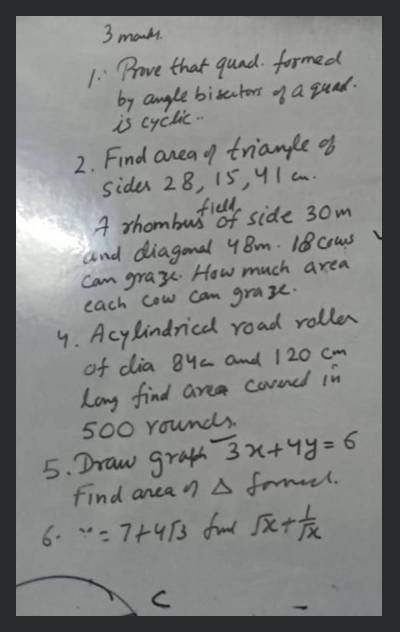 3 marks.
1. Prove that quad. formed
by angle bisectors of a quad.
is cyclic..
2. Find area of triangle of
sides 28, 15, 41 cm.
A rhombus field of side 30m
and diagonal 48m. 18 cows
can graze. How much area
each cow can graze.
4. A cylindrical road roller
of dia 84cm and 120 cm
long find area covered in
500 rounds.
5. Draw graph 3x+4y=6
Find area of Δ formed.
6. x = 7+4√3 find √x+1/√x
C